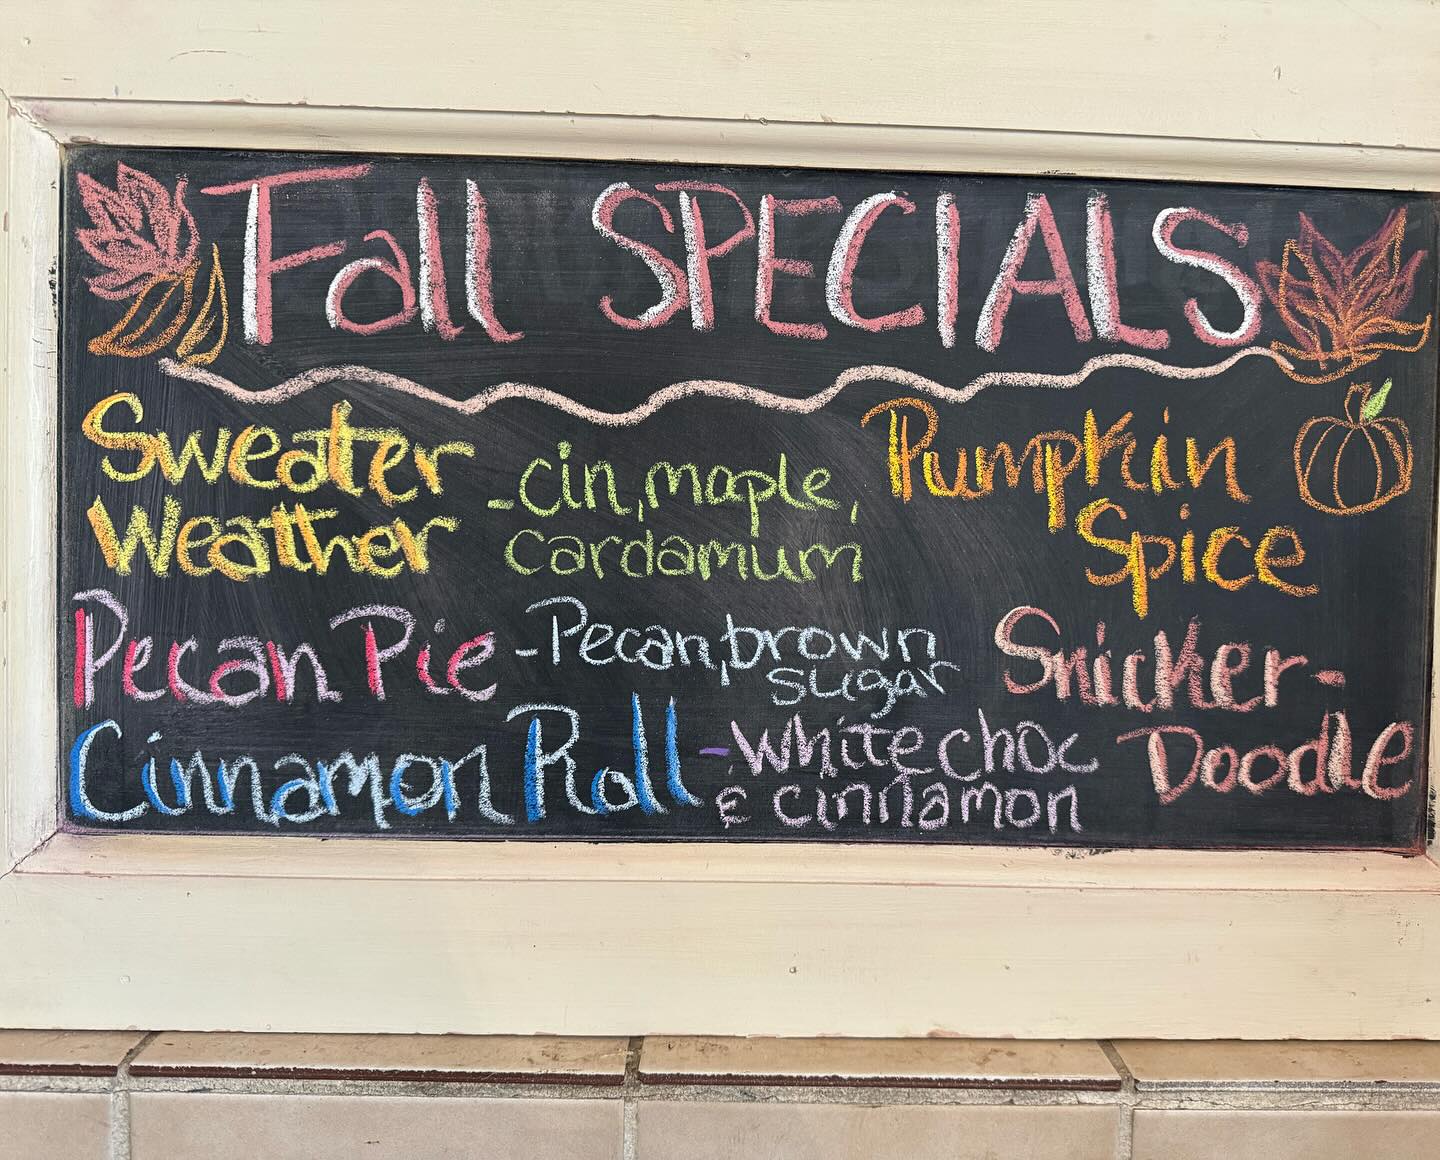 Fall SPECIALS
Sweater
Weather
-cin, maple,
cardamum
Pumpkin
Spice
Pecan Pie
-Pecan, brown
sugar
Snicker-
Doodle
Cinnamon Roll
-White choc
& cinnamon